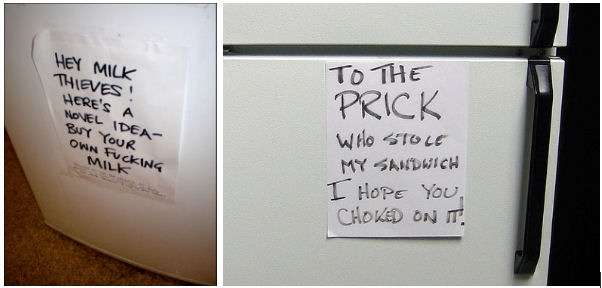 HEY MILK
THIEVES!
HERE'S A
NOVEL IDEA-
BUY YOUR
OWN FUCKING
MILK
TO THE
PRICK
WHO STOLE
MY SANDWICH
I HOPE YOU
CHOKED ON IT!